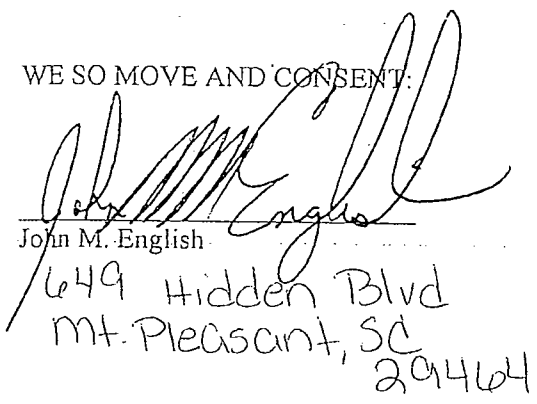 WE SO MOVE AND CONSENT:
John M English
John M. English
649 Hidden Blvd
Mt. Pleasant, SC
29464